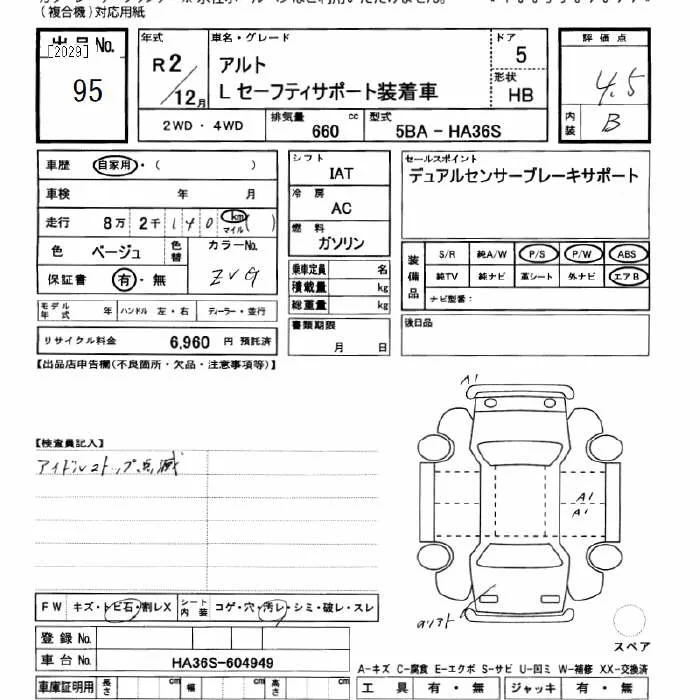 (複合機)対応用紙
出品No. [2029] 95
年式 R2/12月
車名・グレード アルト
L セーフティサポート装着車
ドア 5
形状 HB
評価点 4.5
内装 B
2WD・4WD
排気量 660 cc
型式 5BA-HA36S
車歴 自家用・( )
車検 年 月
走行 8万 2千 140 km マイル ( )
色 ベージュ 色替 カラーNo.
保証書 有・無 ZVG
モデル年式 年 ハンドル 左・右 ディーラー・並行
リサイクル料金 6,960 円 預託済
シフト IAT
冷房 AC
燃料 ガソリン
乗車定員 名
積載量 kg
総重量 kg
書類期限 月 日
セールスポイント
デュアルセンサーブレーキサポート
装備品 S/R 純A/W P/S P/W ABS
純TV 純ナビ 革シート 外ナビ エアB
ナビ型番:
後日品
【出品店申告欄(不良箇所・欠品・注意事項等)】
【検査員記入】
アイドルストップ点滅
A1
A1
A1
スペア
FW キズ・トビ石・割レX
シート内装 コゲ・穴・汚レ・シミ・破レ・スレ
登録No.
車台No. HA36S-604949
車庫証明用 長さ cm 幅 cm 高さ cm
A-キズ C-腐食 E-エクボ S-サビ U-凹ミ W-補修 XX-交換済
工具 有・無 ジャッキ 有・無